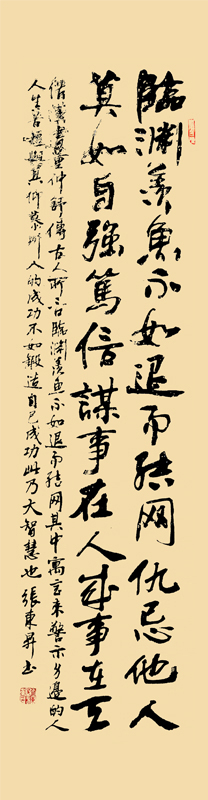 臨渊羡魚不如退而结网仇忌他人
莫如自強篤信謀事在人成事在天
借漢書董仲舒傳古人所言臨渊羡魚不如退而结网其中寓言来警示身邊的人
人生苦短與其仰慕别人的成功不如鍛造自己成功此乃大智慧也 張東昇书